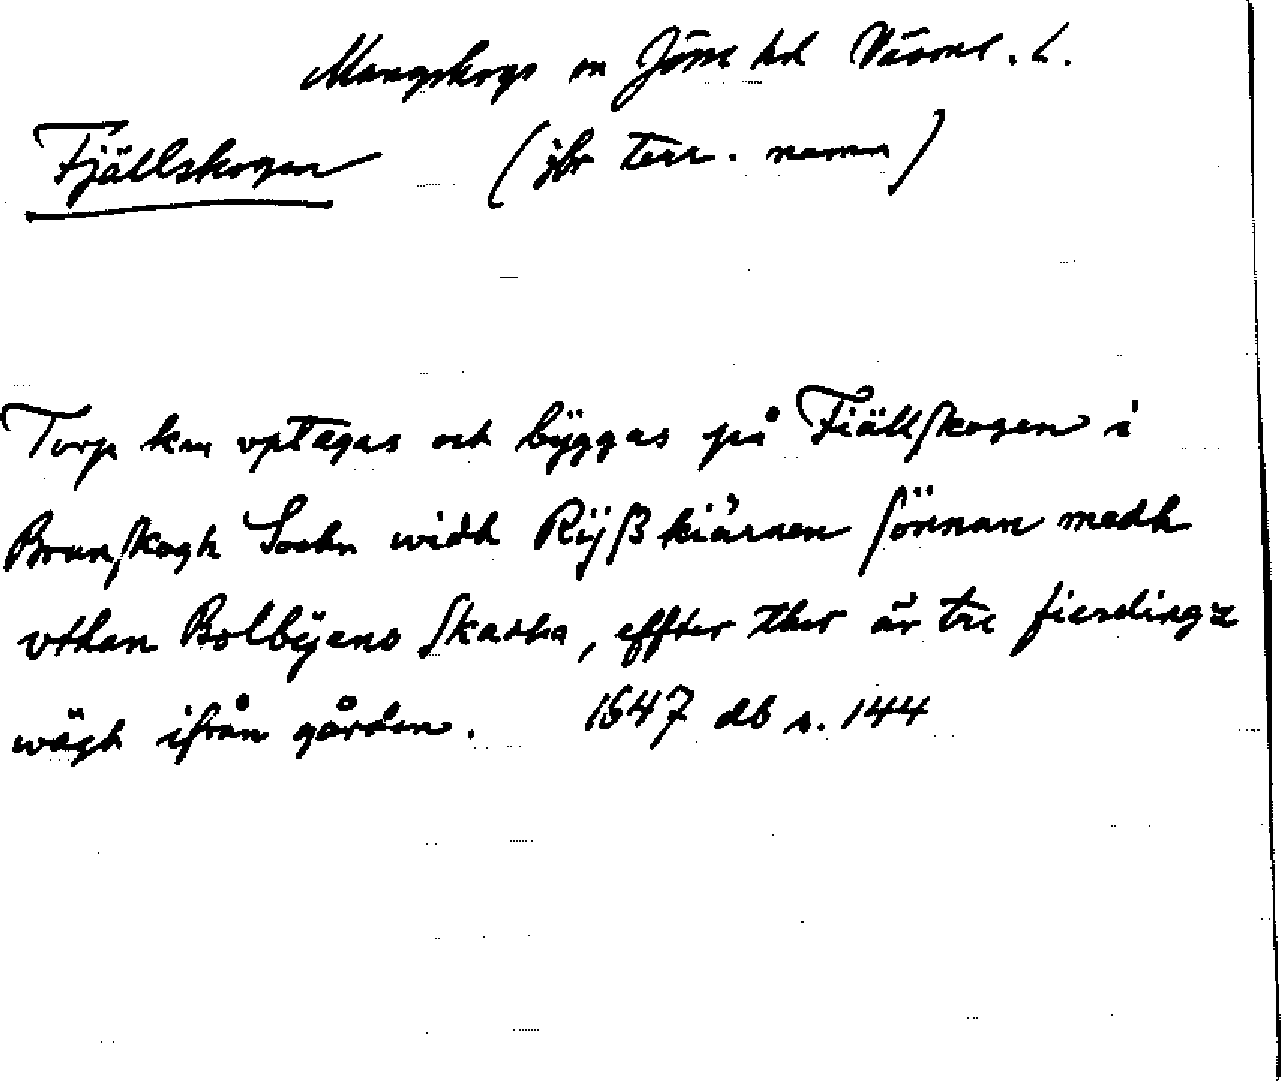 Mangskogs sn Jösse hd Värml. l.
Fjällskogen (jfr terr. namn)
Torp kan vptagas och byggas på Fiällskogen i
Brunskogh Sochn widh Rÿßkiärnen sönnan medh
vthan Bolbÿens Skadha, effter ther är tre fierdingz
wägh ifrån gården. 1647 db s. 144